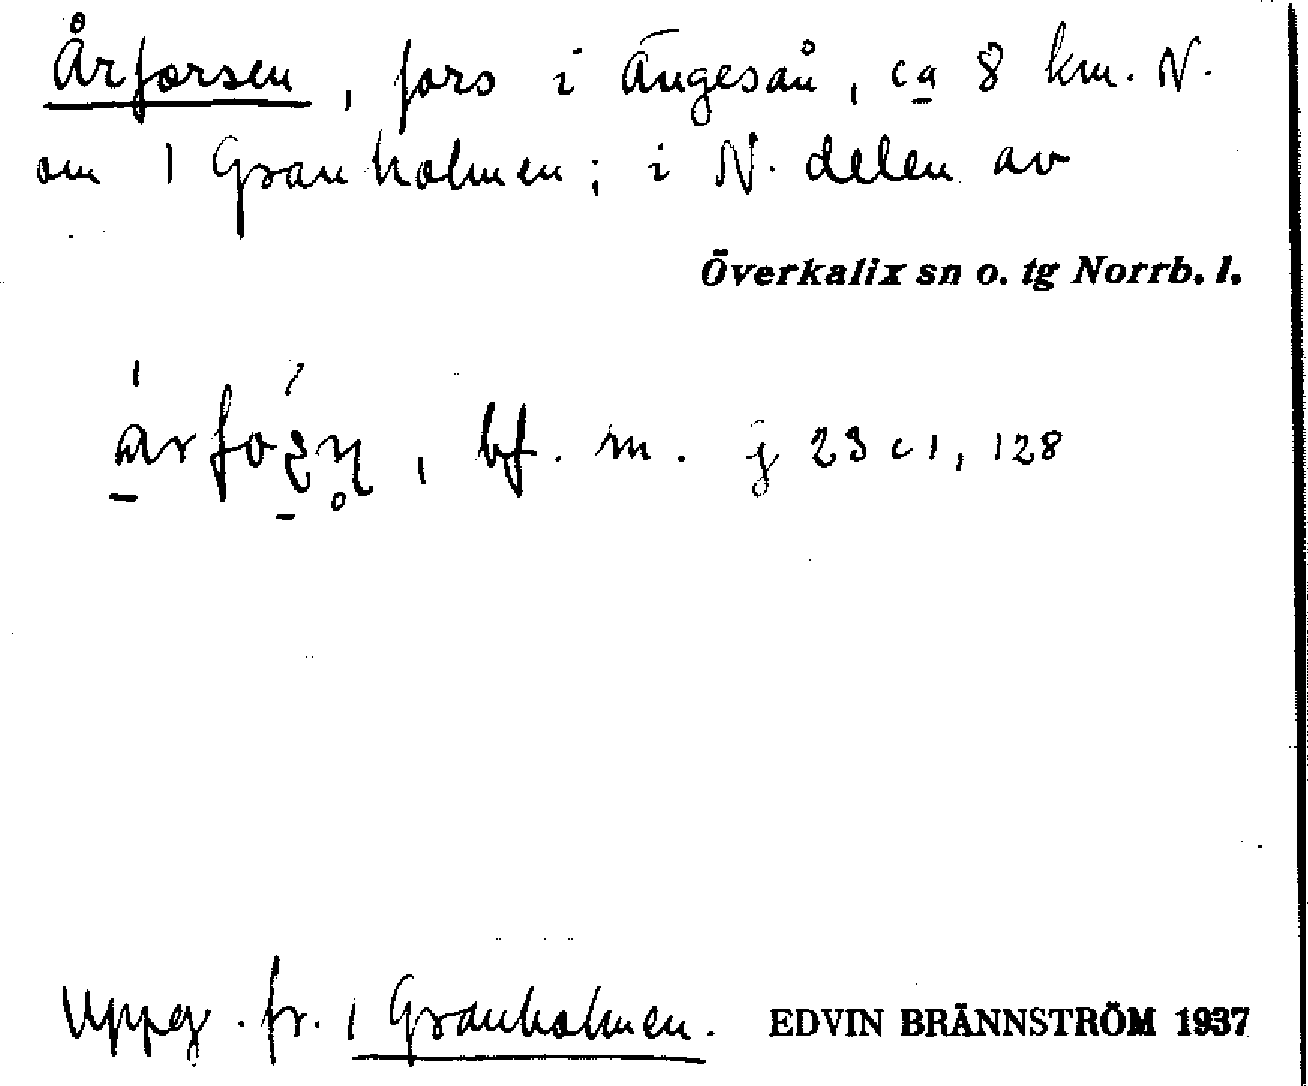 Årforsen, fors i Ängesån, ca 8 km. N.
om 1 Granholmen; i N. delen av
Överkalix sn o. tg Norrb. l.
bf. m. j 23 c 1, 128
Uppg. fr. 1 Granholmen. EDVIN BRÄNNSTRÖM 1937